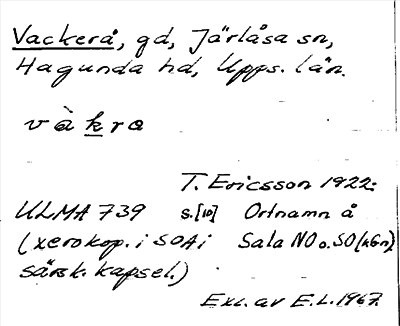 Vackerå, gd, Järlåsa sn,
Hagunda hd, Upps. län.
vàkra
T. Ericsson 1922:
ULMA 739 s.[10] Ortnamn å
(xerokop. i SOA i Sala NO o. SO (kGn).
särsk. kapsel.)
Exc. av E.L. 1967.